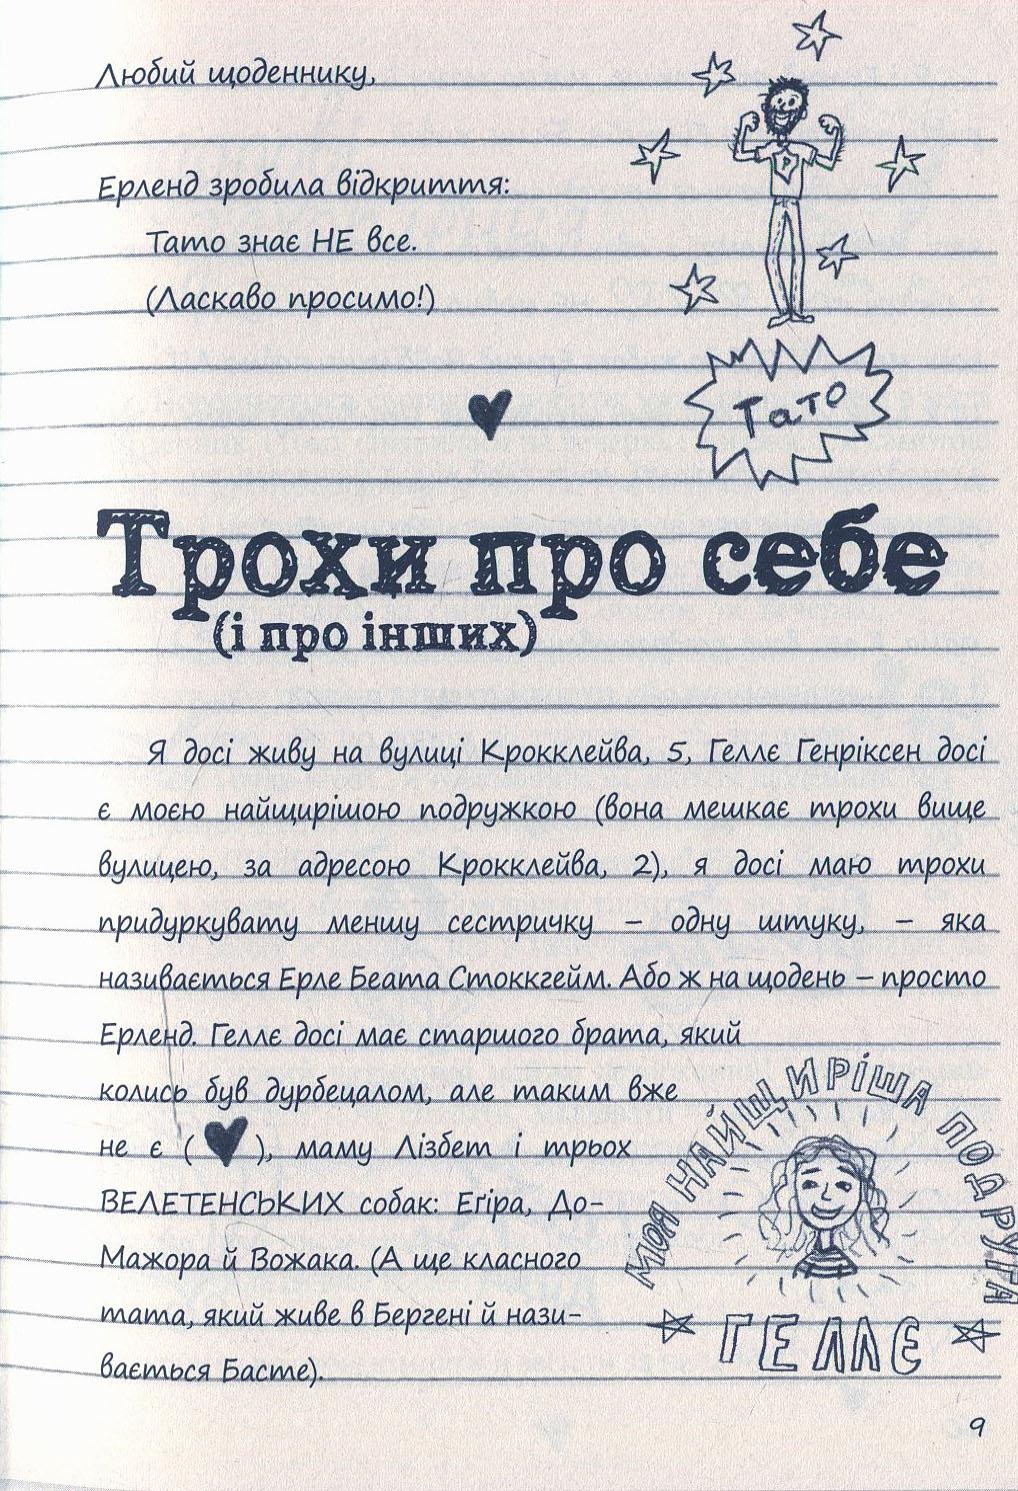 Любий щоденнику,
Ерленд зробила відкриття:
Тато знає НЕ все.
(Ласкаво просимо!)
Тато
Трохи про себе
(і про інших)
Я досі живу на вулиці Крокклейва, 5, Геллє Генріксен досі
є моєю найщирішою подружкою (вона мешкає трохи вище
вулицею, за адресою Крокклейва, 2), я досі маю трохи
придуркувату меншу сестричку – одну штуку, – яка
називається Ерле Беата Стоккгейм. Або ж на щодень – просто
Ерленд. Геллє досі має старшого брата, який
колись був дурбецалом, але таким вже
не є (♥), маму Лізбет і трьох
ВЕЛЕТЕНСЬКИХ собак: Еґіра, До-
Мажора й Вожака. (А ще класного
тата, який живе в Бергені й нази-
вається Басте).
МОЯ НАЙЩИРІША ПОДРУГА
ГЕЛЛЄ
9